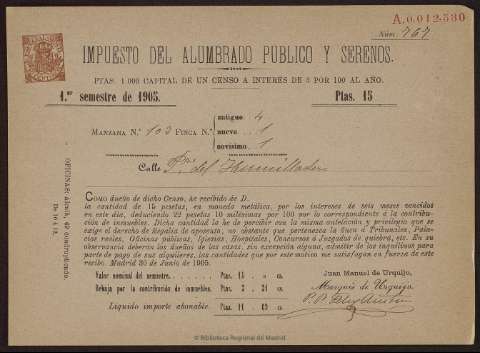 A.0.012.530
Núm. 767
IMPUESTO DEL ALUMBRADO PUBLICO Y SERENOS.
PTAS. 1.000 CAPITAL DE UN CENSO A INTERÉS DE 3 POR 100 AL AÑO.
1.er semestre de 1905.
Ptas. 15
MANZANA N.º 103 FINCA N.º
antiguo 4
nuevo 1
novísimo 1
Calle Pza. del Humilladero
OFICINAS: Alcalá, 49 cuadruplicado.
De 10 á 12.
COMO dueño de dicho Censo, he recibido de D.
la cantidad de 15 pesetas, en moneda metálica, por los intereses de seis meses vencidos
en este día, deduciendo 22 pesetas 10 milésimas por 100 por lo correspondiente á la contribu-
ción de inmuebles. Dicha cantidad la he de percibir con la misma antelación y privilegio que se
exige el derecho de Regalía de aposento, no obstante que pertenezca la finca á Tribunales, Pala-
cios reales, Oficinas públicas, Iglesias, Hospitales, Concursos ó Juzgados de quiebra, etc. En su
observancia deberán los dueños de las casas, sin excepción alguna, admitir de los inquilinos para
parte de pago de sus alquileres, las cantidades que por este motivo me satisfagan en fuerza de este
recibo. Madrid 30 de Junio de 1905.
Valor nominal del semestre. Ptas. 15 » cs.
Rebaja por la contribución de inmuebles. Ptas. 3 31 cs.
Líquido importe abonable. Ptas. 11 69 cs.
Juan Manuel de Urquijo,
Marqués de Urquijo.
P. P.
© Biblioteca Regional de Madrid